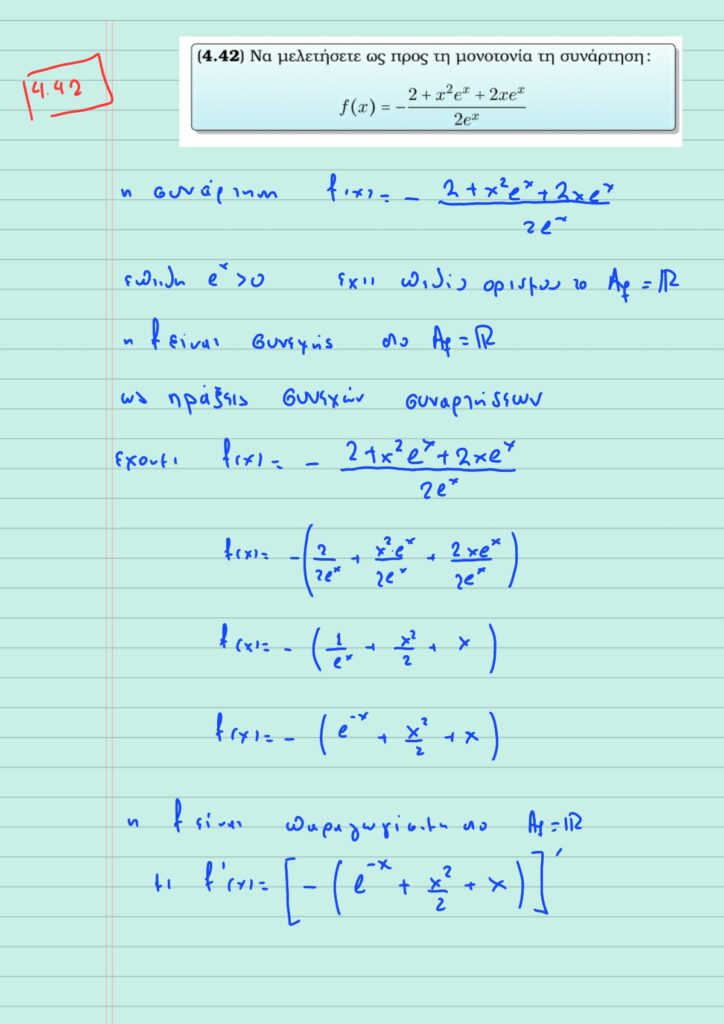 4.42
(4.42) Να μελετήσετε ως προς τη μονοτονία τη συνάρτηση:
f(x) = −(2 + x²eˣ + 2xeˣ)/(2eˣ)
η συνάρτηση f(x) = − (2 + x²eˣ + 2xeˣ)/(2eˣ)
επειδή eˣ > 0 έχει πεδίο ορισμού το A_f = ℝ
η f είναι συνεχής στο A_f = ℝ
ως πράξεις συνεχών συναρτήσεων
έχουμε f(x) = − (2 + x²eˣ + 2xeˣ)/(2eˣ)
f(x) = −(2/(2eˣ) + (x²·eˣ)/(2eˣ) + (2xeˣ)/(2eˣ))
f(x) = − (1/eˣ + x²/2 + x)
f(x) = − (e⁻ˣ + x²/2 + x)
η f είναι παραγωγίσιμη στο A_f = ℝ
με f'(x) = [− (e⁻ˣ + x²/2 + x)]'